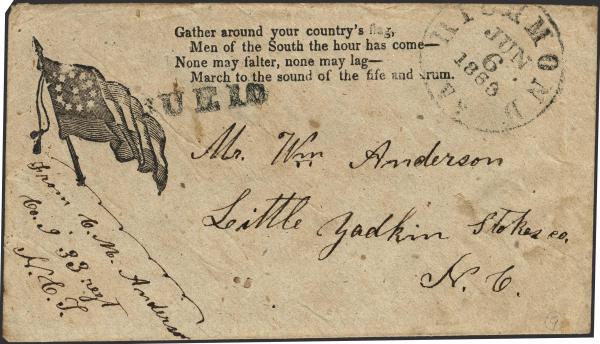 Gather around your country's flag,
Men of the South the hour has come—
None may falter, none may lag—
March to the sound of the fife and drum.
RICHMOND
JUN
6
1863
DUE 10
Mr. Wm Anderson
Little Yadkin Stokes co.
N. C.
From C. M. Anderson
Co. I 33 regt
N. C. T.